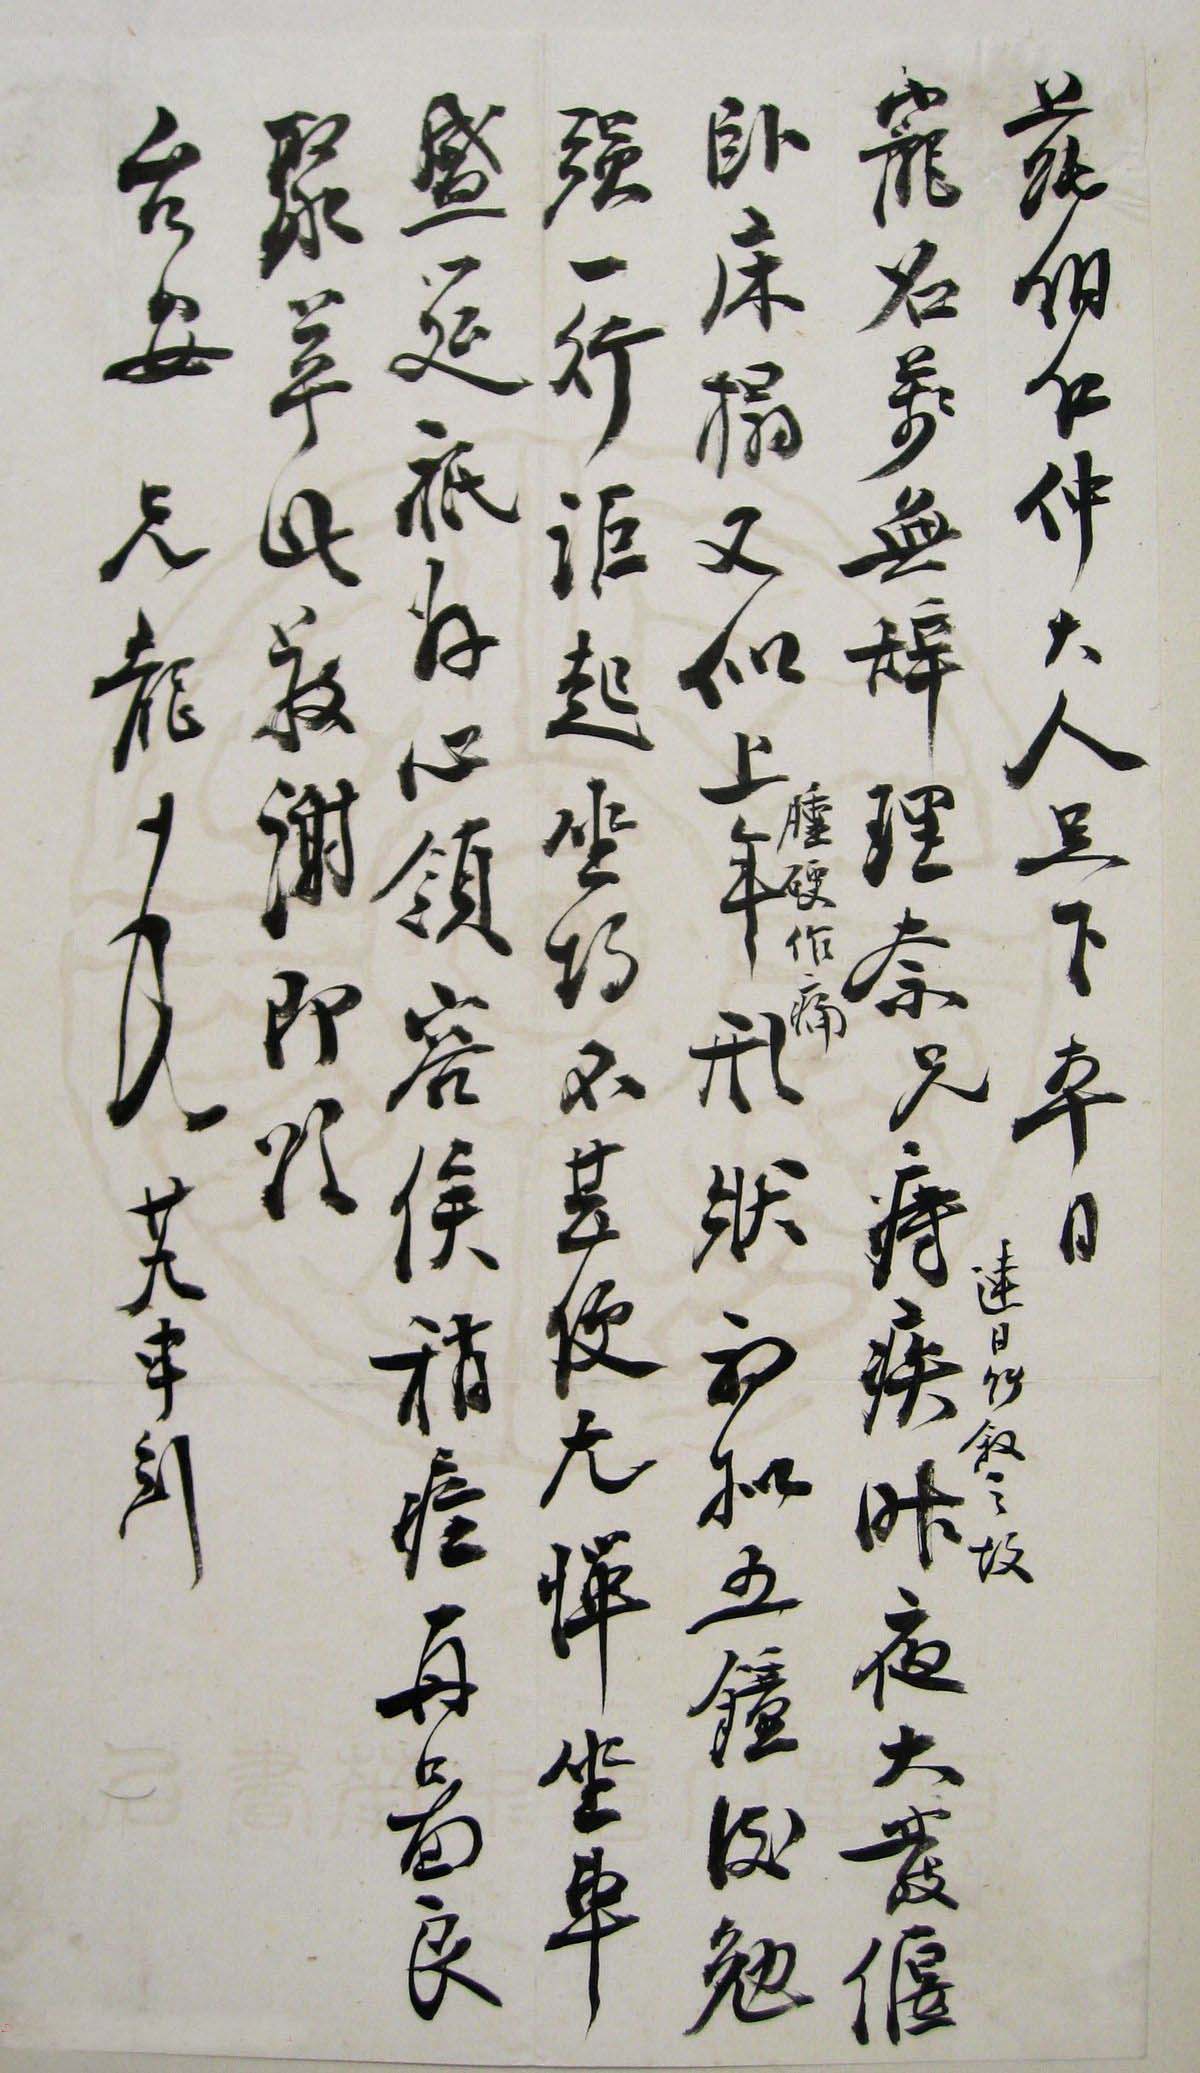 茂翎仁仲大人足下本日
寵召萬無辭理奈兄痔疾昨夜大發偃
連日所敘之故
臥床榻又似上年形狀初擬五鐘後勉
腫硬作痛
強一行詎起坐均不甚便尤憚坐車
盛筵祇好心領容俟稍痊再圖良
聚草此敬謝即頌
台安 兄龍 廿九申刻